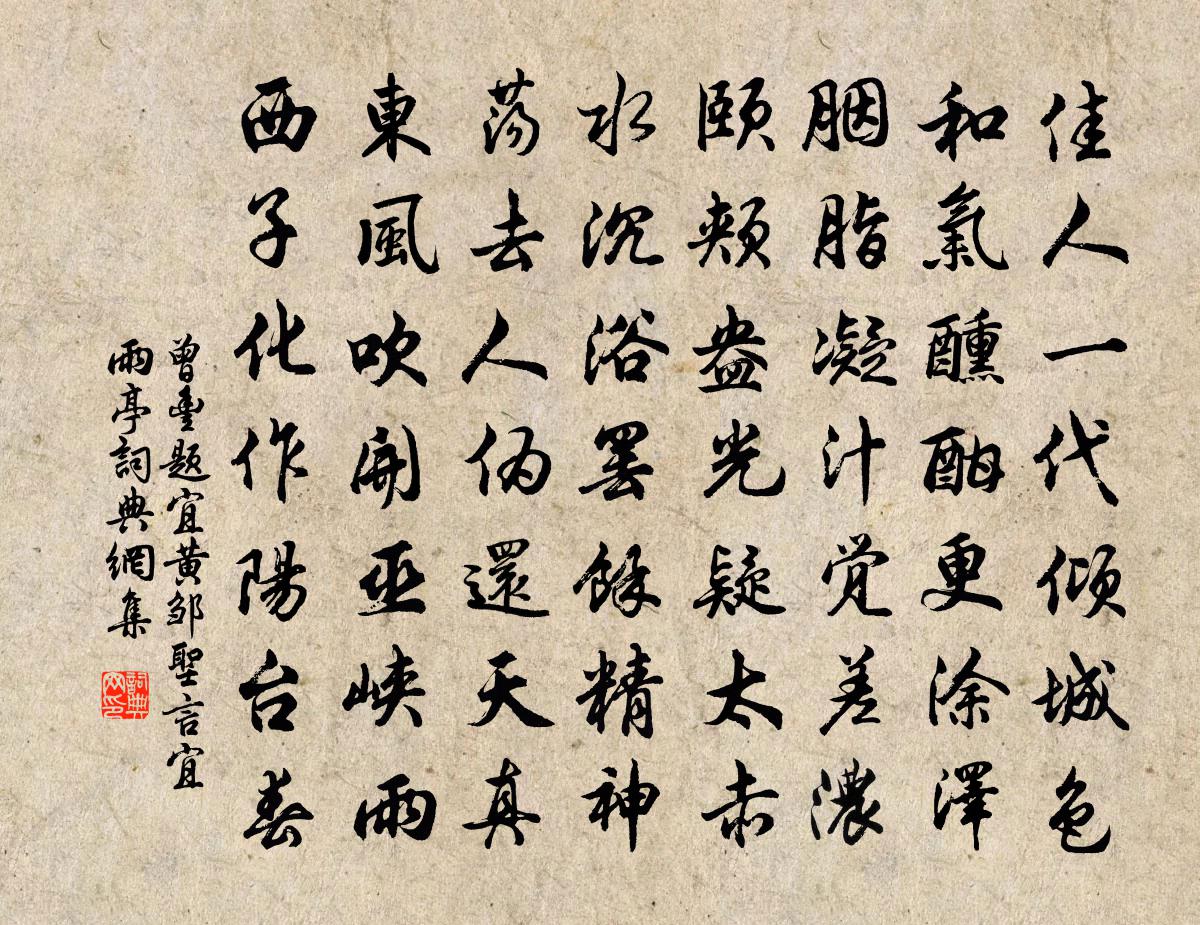 佳人一代倾城色
和氣醺酣更涂澤
胭脂凝汁觉差濃
頤頰盎光疑太赤
水沉浴罢餘精神
荡去人伪還天真
東風吹開巫峡雨
西子化作陽台春
曾豐题宜黄邹聖言宜
雨亭詞典網集
詞典网印